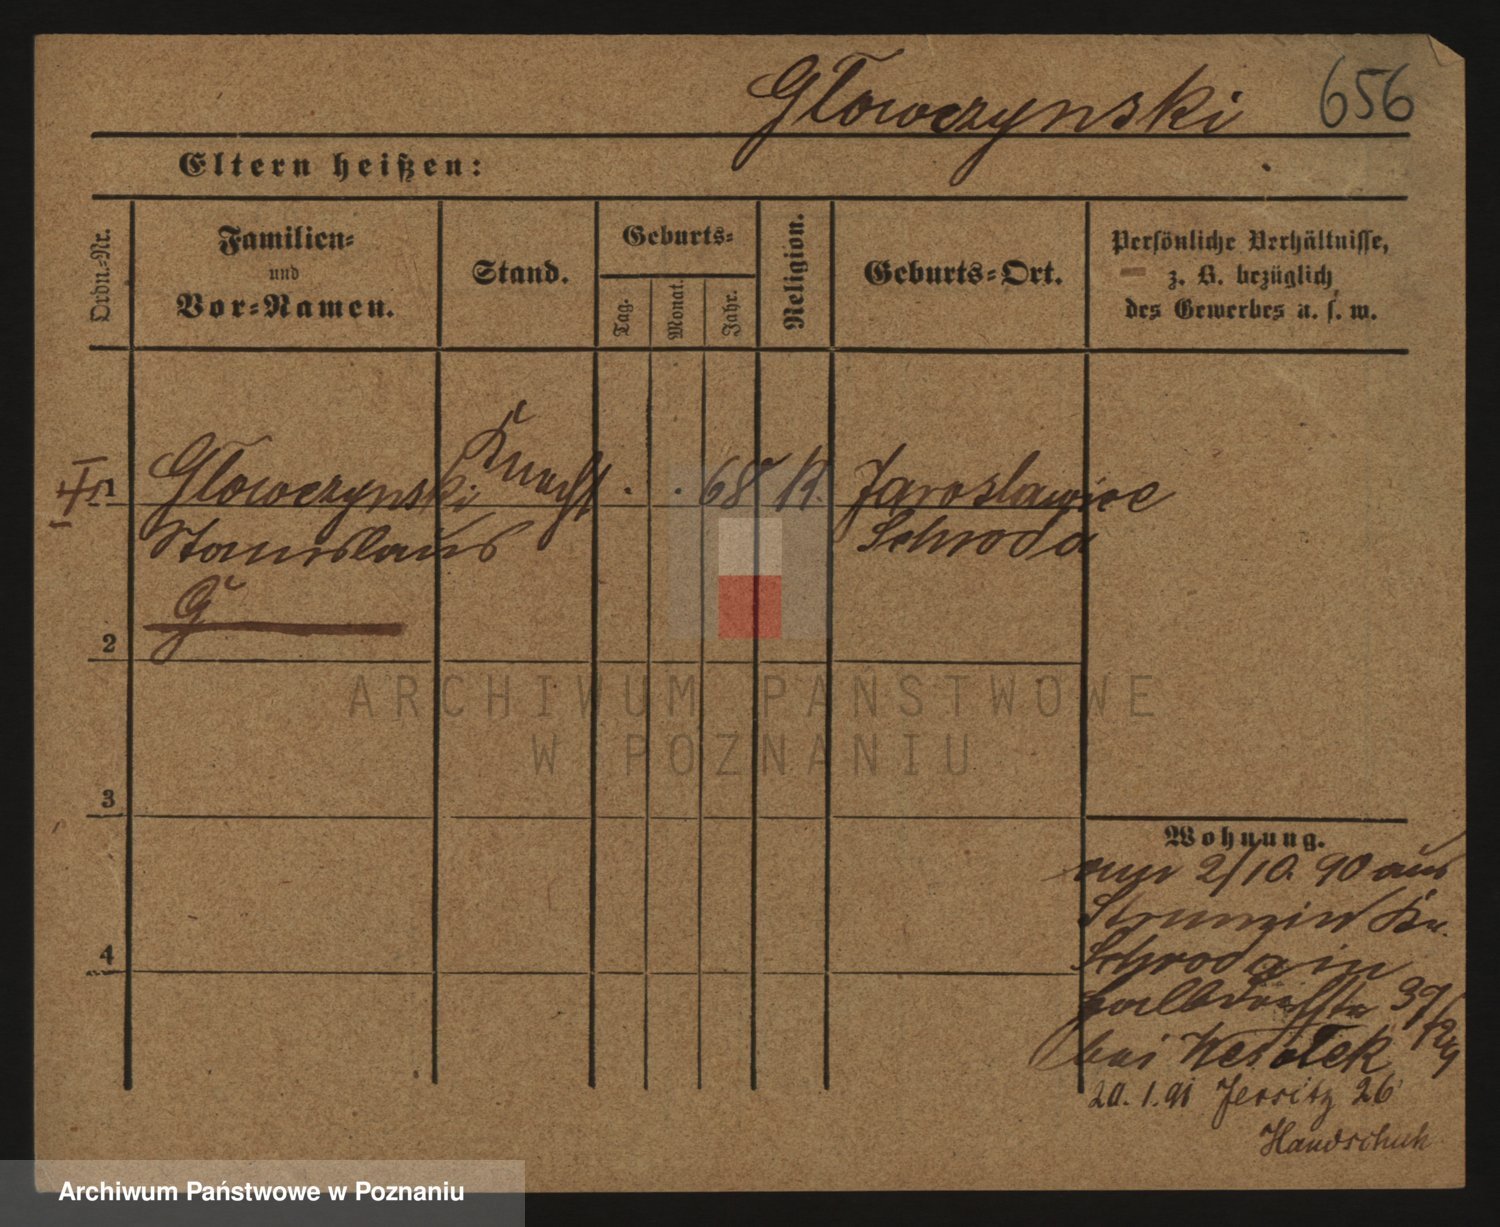 Głowczynski 656
Eltern heißen:
Ordn.-Nr.
Familien-
und
Vor-Namen.
Stand.
Geburts-
Tag.
Monat.
Jahr.
Religion.
Geburts-Ort.
Persönliche Verhältnisse,
z. B. bezüglich
des Gewerbes u. s. w.
1 Głowczynski Knecht . . 68 K. Jaroslawice
Stanislaus Schroda
G
2
3
4
Wohnung.
2/10. 90 aus
Kr.
Schroda in
39
bei Wesołek
20. 1. 91 Jersitz 26
Handschuh
ARCHIWUM PAŃSTWOWE
W POZNANIU
Archiwum Państwowe w Poznaniu